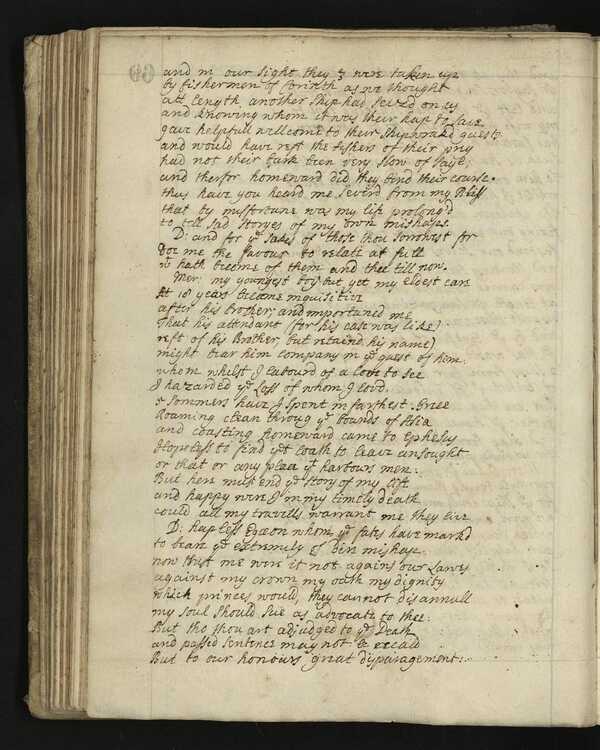 and in our sight they 3 were taken up
by fishermen of Corinth as we thought
att length another ship had seiz'd on us
and knowing whom it was their hap to save
gave helpfull wellcome to their shipwrakd guests
and would have reft the fishers of their prey
had not their bark been very slow of sayle
and therfor homeward did they bend their course.
thus have you heard me sever'd from my Bliss
that by misfortune was my life prolong'd
to tell sad storyes of my own mishaps.
D: and for ye sakes of those thou sorrowest for
Doe me the favour to relate at full
wt hath become of them and thee till now.
Mer: my youngest boy but yet my eldest care
At 18 years became inquisitive
after his brother; and importuned me
That his attendant (for his case was like)
reft of his Brother, but retaind his name)
might bear him company in ye quest of him
whom whilst I labourd of a love to see
I hazarded ye loss of whom I lovd.
5 sommers have I spent in farthest Greec
Roaming clean throug ye bounds of Asia
and coasting homeward came to Ephesus
Hopeless to find yet loath to leave unsought
or that or any place yt harbours men.
But here must end ye story of my life
and happy were I in my timely death
could all my travells warrant me they live
D: hapless Egeon whom ye fates have markd
to beare ye extremity of dire mishap.
now trust me were it not agains our Laws
against my crown my oath my dignity
which princes would, they cannot disannull
my soul should sue as advocate to thee.
But tho thou art adjudged to ye Death
and passed sentence may not be recald
But to our honours great disparagement: